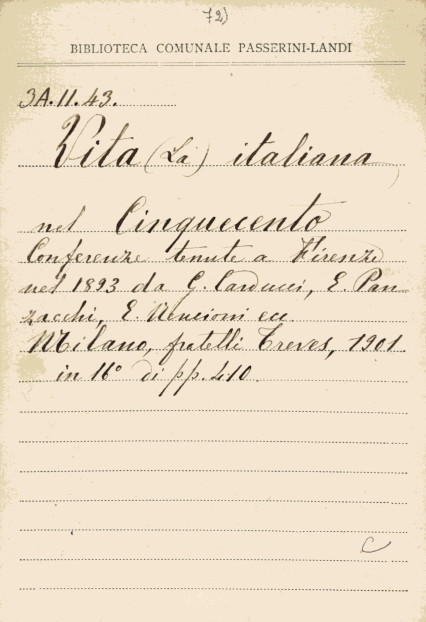 72)
BIBLIOTECA COMUNALE PASSERINI-LANDI
3A.11.43.
Vita (La) italiana
nel Cinquecento
Conferenze tenute a Firenze
nel 1893 da G. Carducci, E. Pan-
zacchi, E. Nencioni ecc.
Milano, fratelli Treves, 1901
in 16° di pp. 410.
C